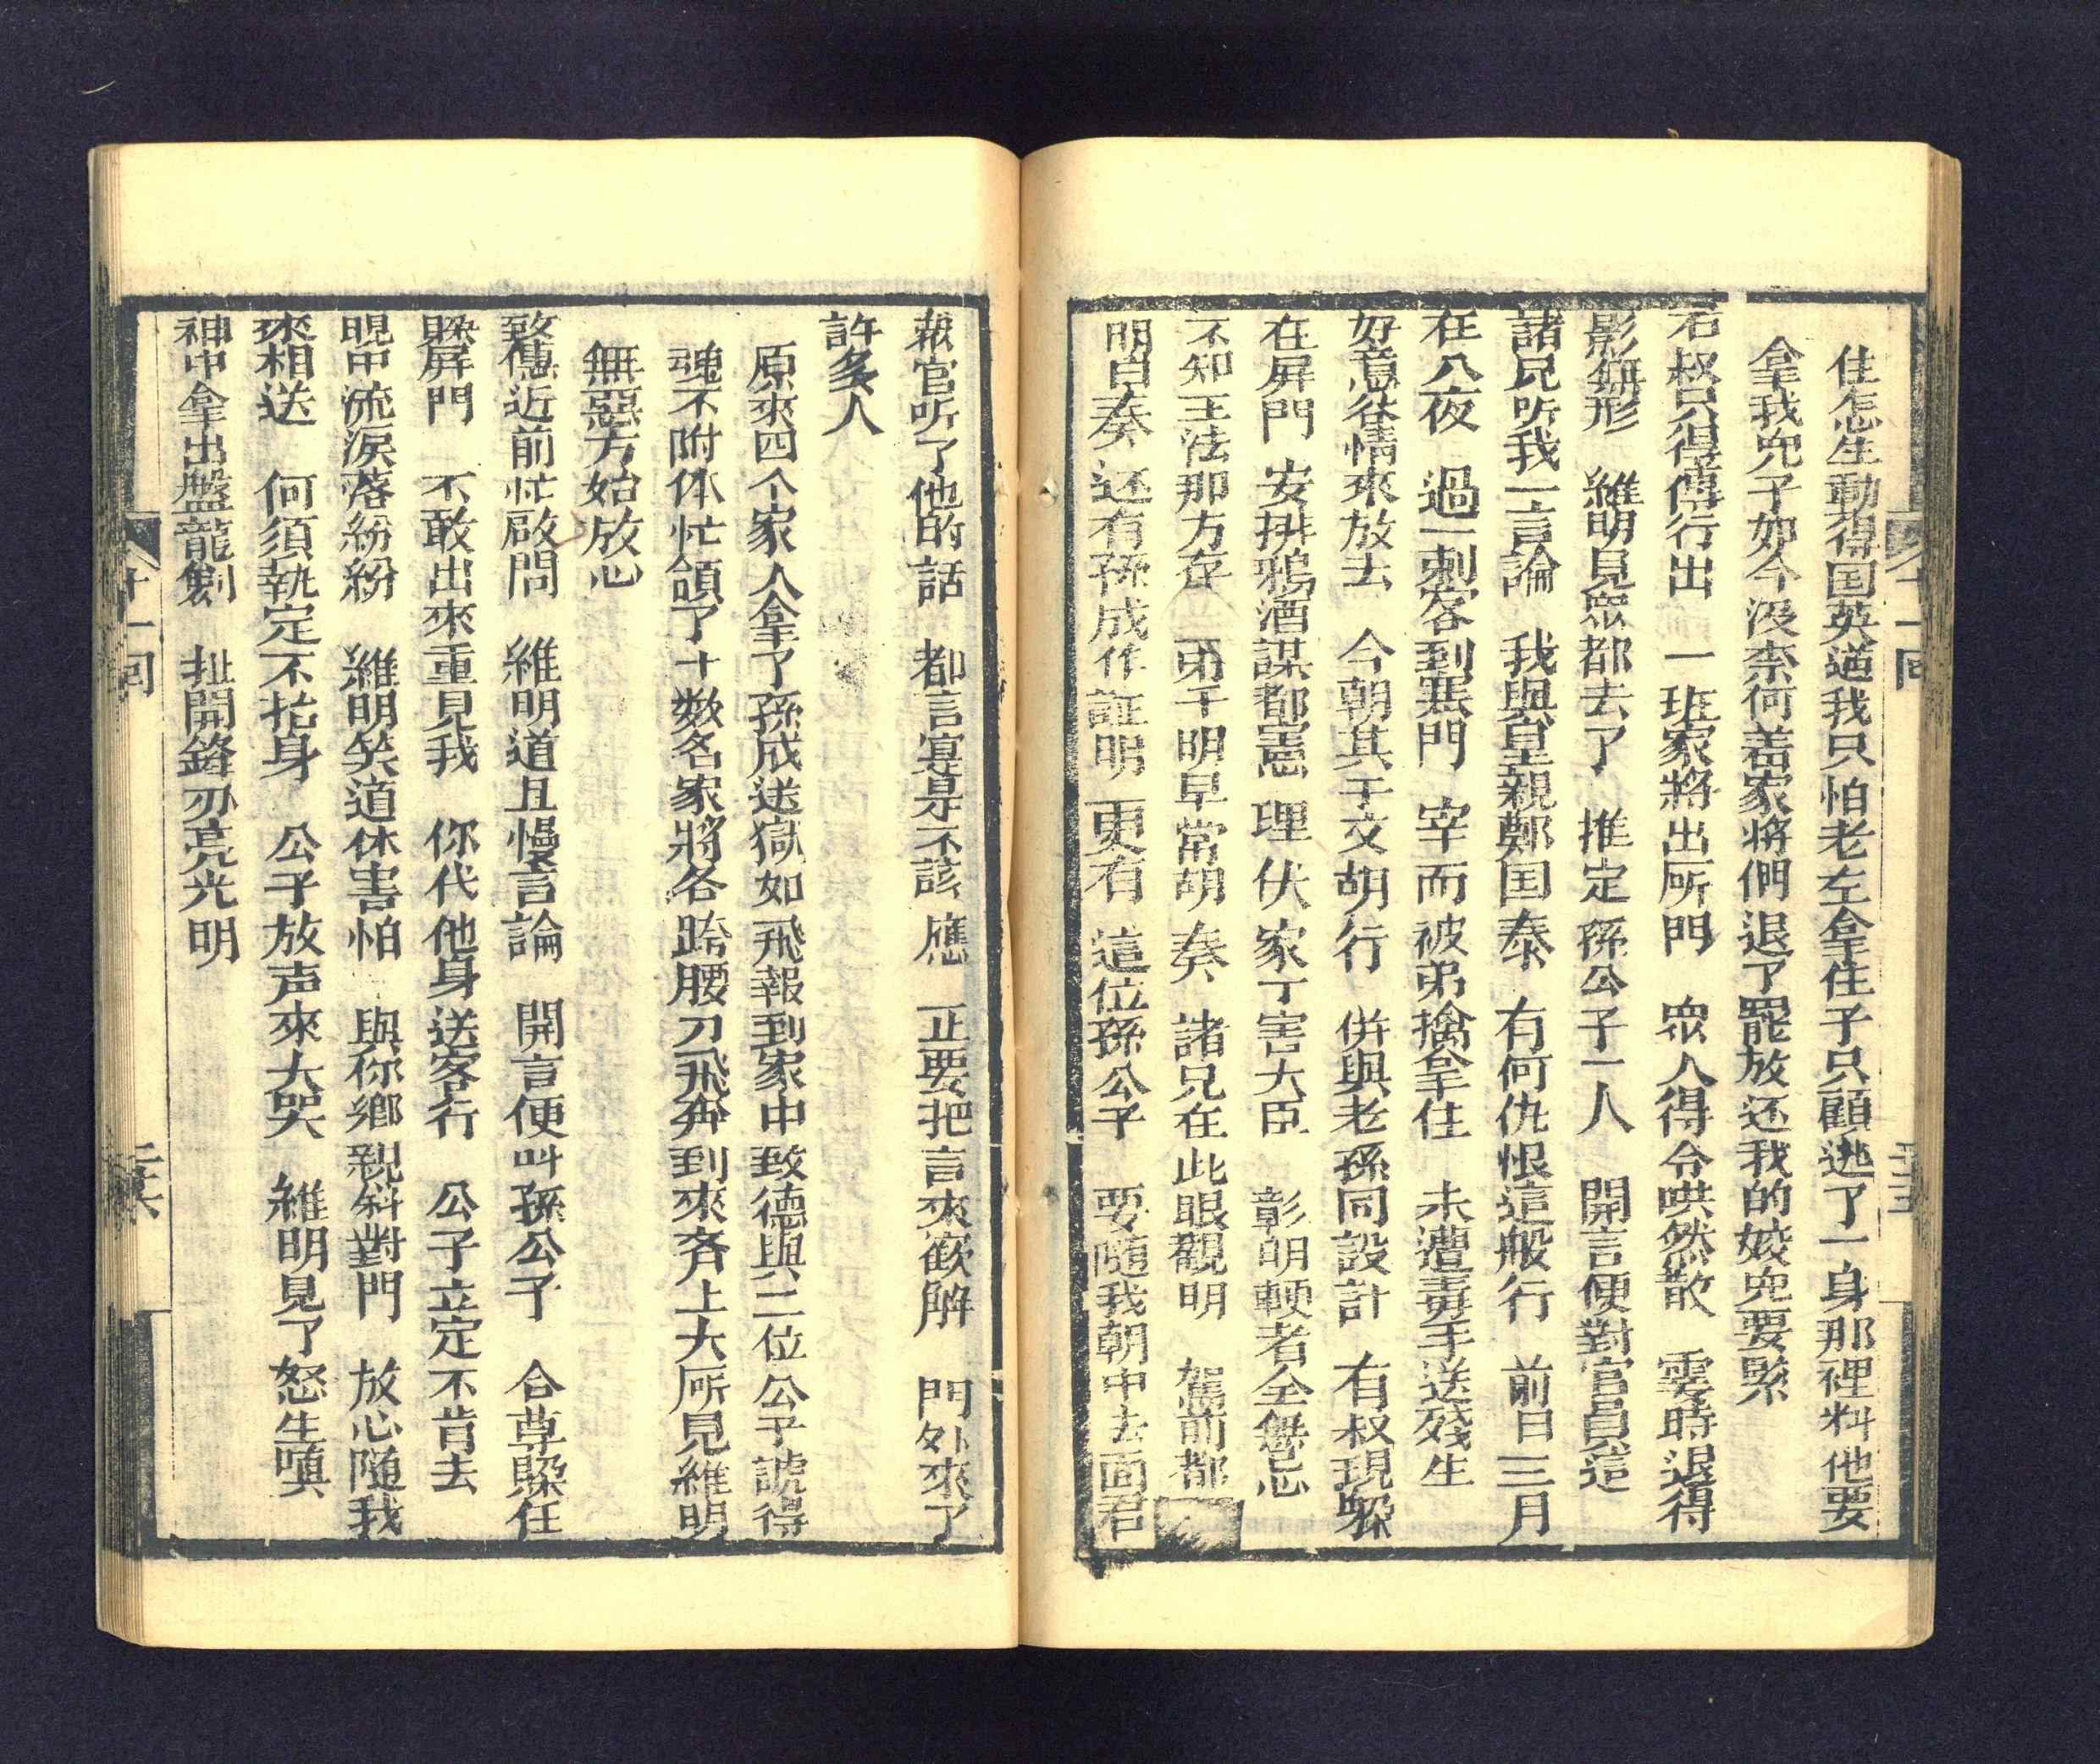 住怎生動得国英道我只怕老左拿住子只顧逃了一身那裡料他要
拿我兒子如今没柰何着家將們退了罷放还我的姣兒要緊
右叔只得傳行出　一班家將出所門　衆人得令哄然散　霎時退得
影無形　維明見衆都去了　推定孫公子一人　開言便對官員這
諸兄听我一言論　我與皇親鄭国泰　有何仇恨這般行　前日三月
在八夜　過一刺客到寒門　宰而被弟擒拿住　未遭毒手送殘生
好意容情來放去　今朝其于文胡行　併與老孫同設計　有叔現躱
在屏門　安排鴉酒謀都憲　理伏家丁害大臣　彰明輭者全無忌
不知王法那方存　弟于明早常胡奏　諸兄在此眼觀明　駕前都
明白奏　还有孫成作証明　更有這位孫公子　要隨我朝中去面君
十一回
報官听了他的話　都言寔是不該應　正要把言來歡解　門外來了
許多人
原來四个家人拿了孫成送獄如飛報到家中致德與二位公子諕得
魂不附体忙領了十数名家將各跨腰刀飛奔到來齐上大所見維明
無惡方始放心
致德近前忙啟問　維明道且慢言論　開言便叫孫公子　合尊躱在
躱屏門　不敢出來重見我　你代他身送客行　公子立定不肯去
眼中流淚落紛紛　維明笑道休害怕　與你鄉親斜對門　放心隨我
來相送　何須執定不抬身　公子放声來大哭　維明見了怒生嗔
神中拿出盤龍劍　扯開鋒刃亮光明
十一回
二六